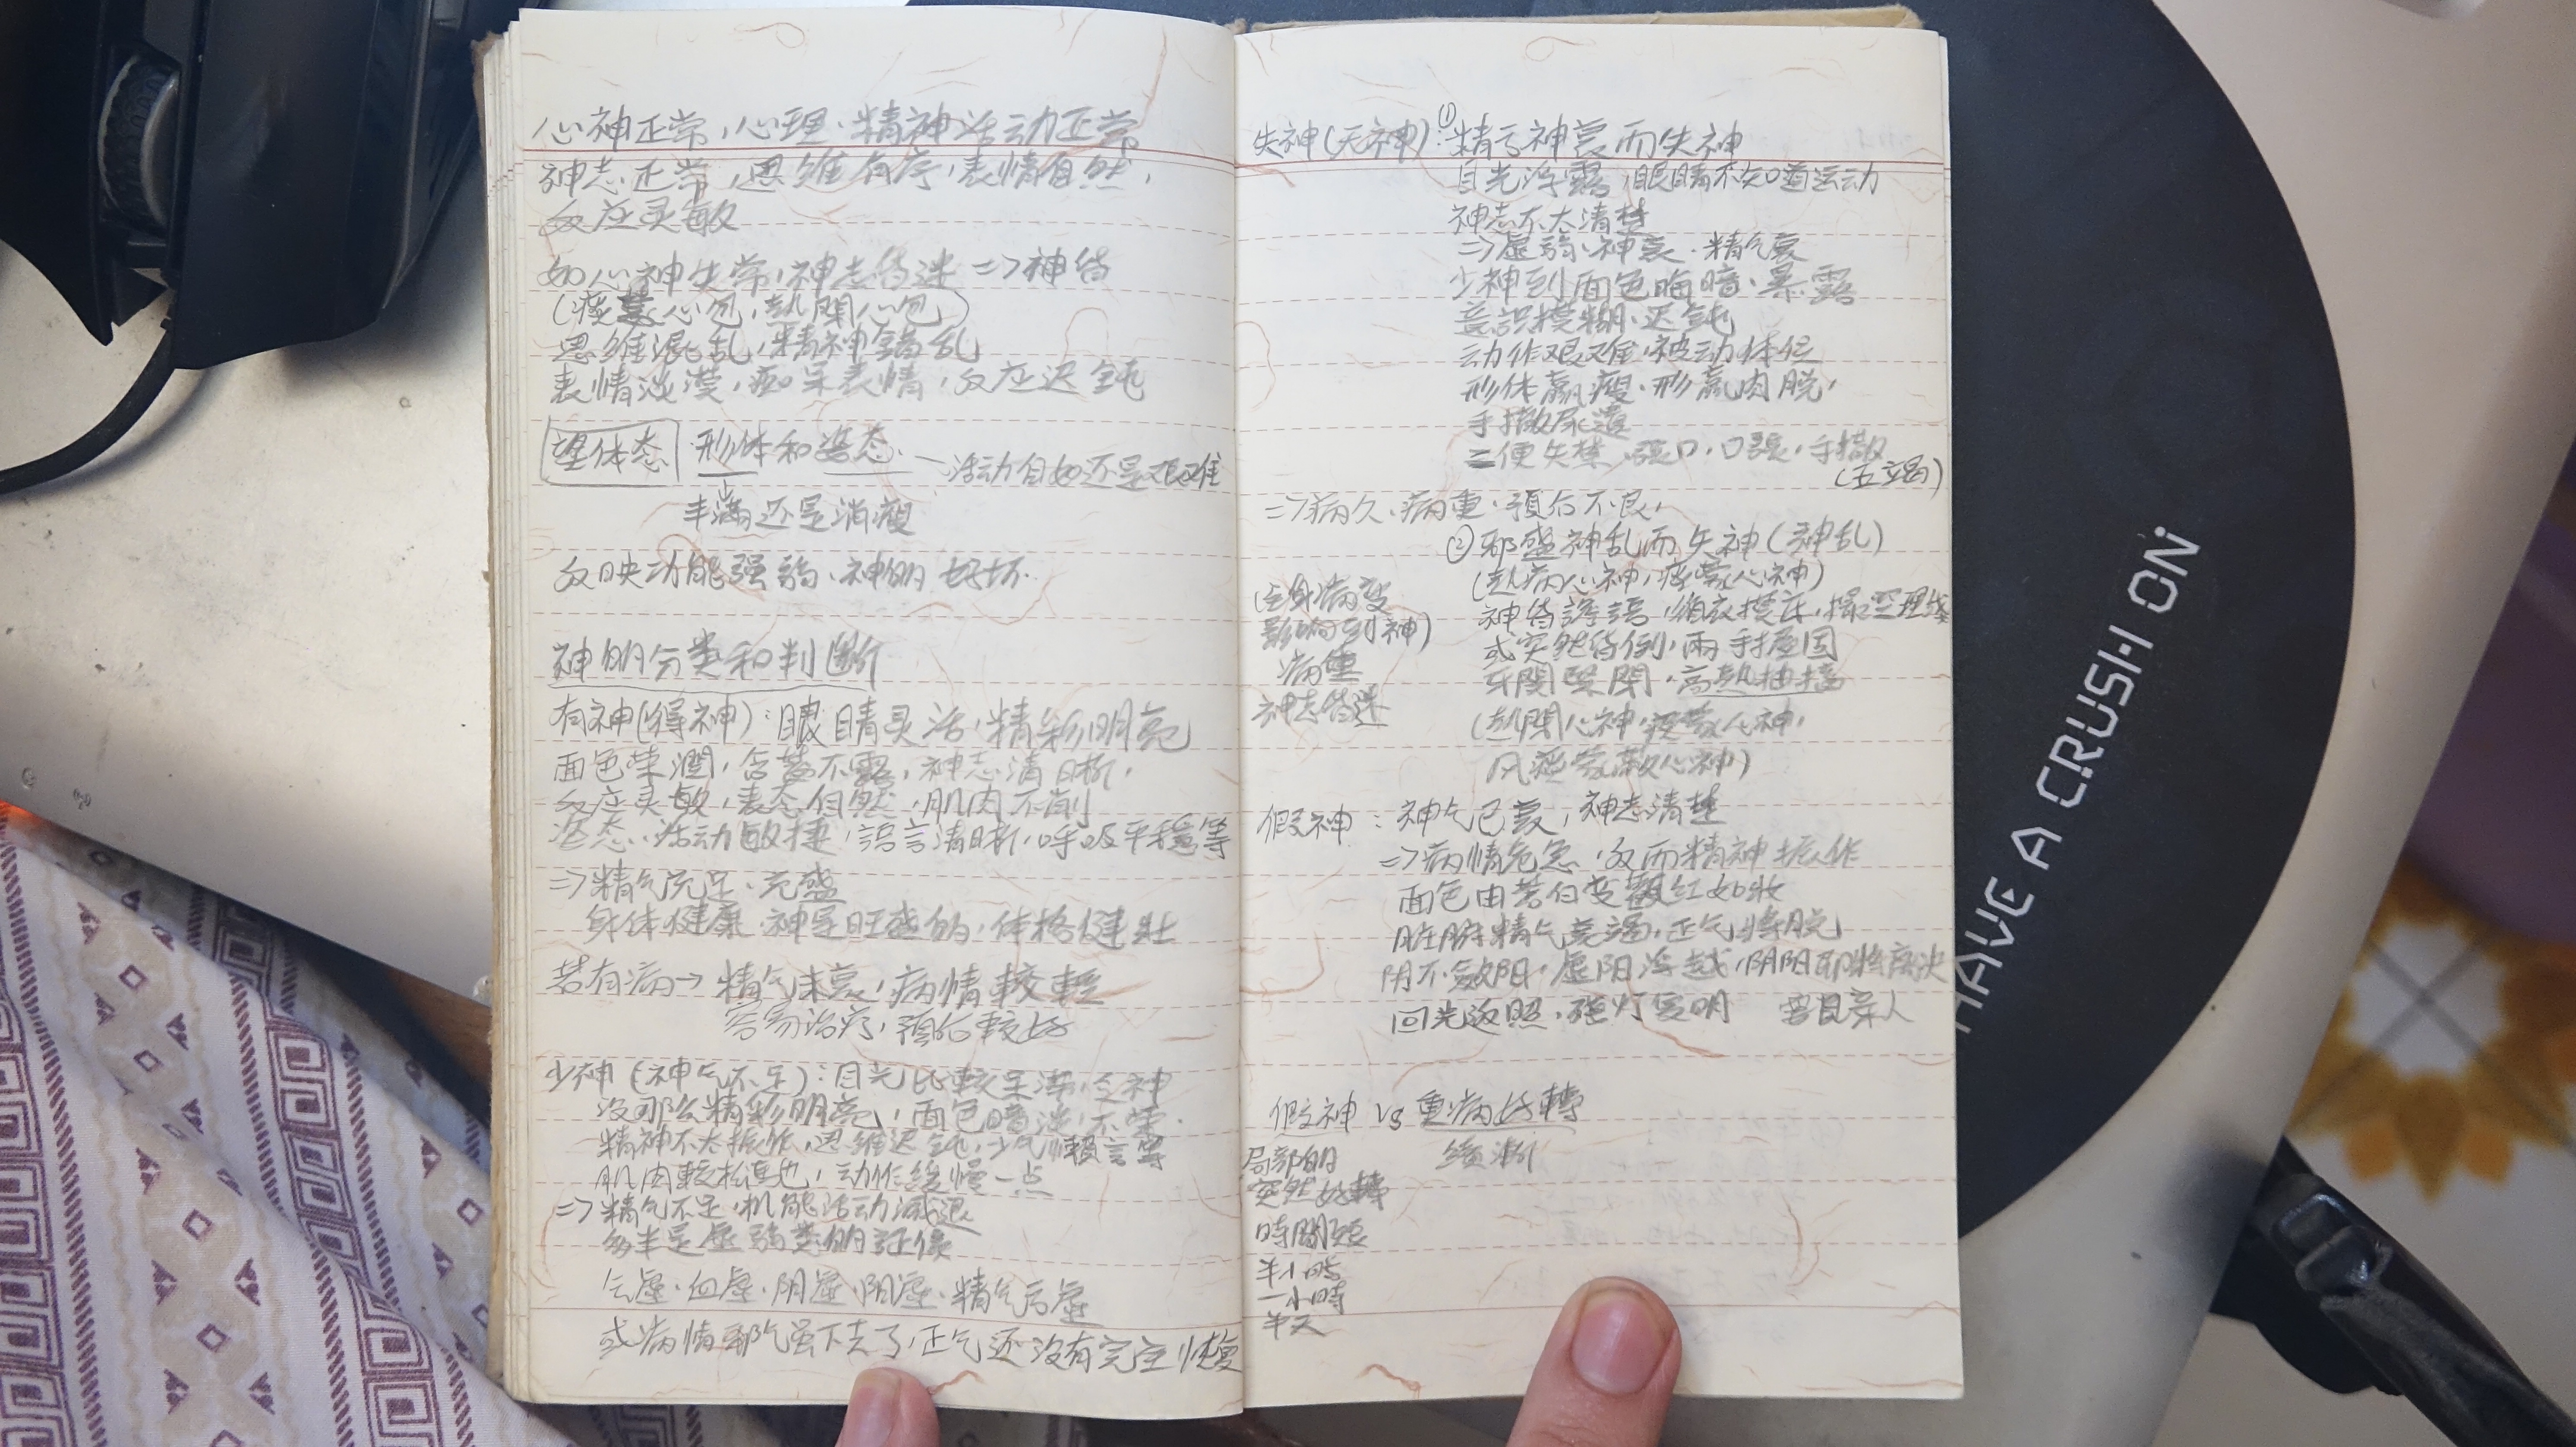 心神正常,心理·精神活动正常
神志正常,思维有序,表情自然,
反应灵敏
如心神失常,神志昏迷 => 神昏
(痰蒙心包,熱閉心包)
思维混乱,精神錯乱
表情淡漠,痴呆表情,反应迟鈍
望体态 形体和姿态 — 活动自如还是艰难
丰滿还是消瘦
反映功能强弱、神的好坏.
神的分类和判断
有神(得神):眼睛灵活,精彩明亮
面色荣潤,含蓄不露,神志清晰,
反应灵敏,表态自然,肌肉不削
姿态、活动敏捷,語言清晰,呼吸平穩等
=> 精气充足、充盛
身体健康 神是旺盛的,体格健壯
若有病→ 精气未衰,病情較輕
容易治疗,預后較好
少神(神气不足):目光比較呆滞,乏神
沒那么精彩明亮,面色暗淡,不荣.
精神不太振作,思维迟鈍,少气懶言等
肌肉較松弛,动作緩慢一点
=> 精气不足,机能活动減退
多半是虛弱类的証候
气虛·血虛·阴虛·阳虛·精气亏虛
或病情邪气虽下去了,正气还沒有完全恢复
失神(无神):① 精亏神衰而失神
目光浮露,眼睛不知道运动
神志不太清楚
=> 虛弱、神衰·精气衰
少神到面色晦暗·暴露
意識模糊、迟鈍
动作艰难,被动体位
形体羸瘦·形羸肉脱,
手撒尿遺
二便失禁,張口,口張,手撒
=> 病久、病重·預后不良,
② 邪盛神乱而失神(神乱)
神昏譫語,循衣摸床,撮空理线
或突然昏倒,兩手握固
牙関緊閉,高熱抽搐
(熱閉心神,痰蒙心神,
風痰蒙蔽心神)
(全身病变
影响到神)
病重
神志昏迷
假神:神气已衰,神志清楚
=> 病情危急,反而精神振作
面色由苍白变顴红如妝
脏腑精气衰竭,正气将脱
阴不斂阳,虛阳浮越,阴阳即将离决
回光返照,殘灯复明 要見亲人
假神 vs 重病好轉
局部的 緩漸
突然好轉
時間短
半小時
一小時
半天
HAVE A CRUSH ON